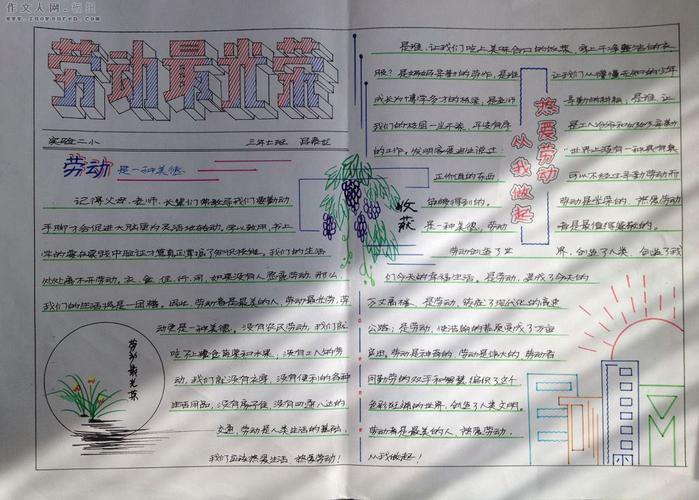 作文人网·板报
www.zuowenren.com
劳动最光荣
实验二小 三年七班
劳动 是一种美德
记得父母、老师、长辈们常教导我们要勤动
手脚才会促进大脑更为灵活地转动,学以致用,书上
学的要在实践中验证才算真正掌握了知识技能。我们的生活
处处离不开劳动。衣、食、住、行、用,如果没有人愿意劳动,那么,
我们的生活将是一团糟。因此,劳动者是最美的人,劳动最光荣,劳
动更是一种美德。没有农民劳动,我们就
吃不上粮食蔬菜和水果,没有工人的劳
动,我们就没有衣穿,没有便利的各种
生活用品,没有房子住,没有四通八达的
交通,劳动是人类生活的基础,
我们应该热爱生活,热爱劳动!
劳动最光荣
收获
热爱劳动
从我做起
是谁,让我们吃上美味可口的饭菜,穿上干净整洁的衣
服?是妈妈辛勤的劳作,是谁 让我们从懵懂无知的少年
成长为博学多才的 是老师 辛勤的耕耘,是谁,让
我们的校园一尘不染,
的工作。发明家爱迪生说过: “世界上没有一种具有真
正价值的东西 可以不经过辛勤劳动而
能够得到的。 劳动是光荣的,热爱劳动
是一种美德,劳动 者是最值得尊敬的。
劳动创造了世 界,创造了人类,创造了我
们今天的幸福生活。是劳动,建成了今天的
万丈高楼,是劳动,筑起了现代化的高速
公路,是劳动,使浩瀚的荒漠变成了万亩
良田,劳动是神奇的,劳动是伟大的,劳动者
用勤劳的双手和智慧,编织了这个
色彩斑斓的世界,创造了人类文明。
劳动者是最美的人,热爱劳动,
从我做起!